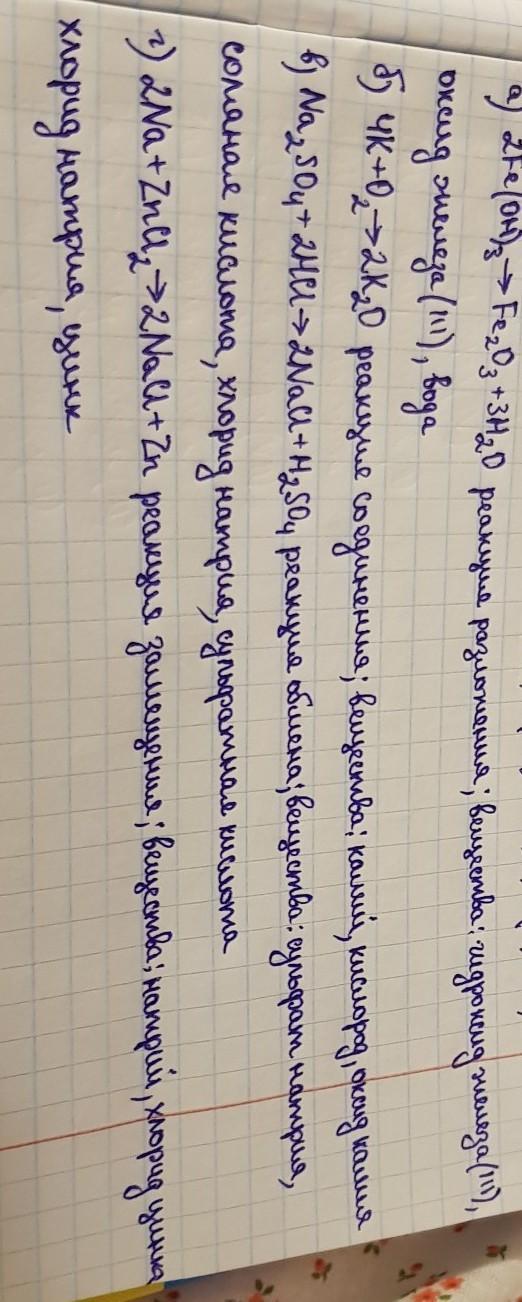 а) 2Fe(OH)₃ → Fe₂O₃ + 3H₂O реакция разложения; вещества: гидроксид железа(III),
оксид железа(III), вода
б) 4K + O₂ → 2K₂O реакция соединения; вещества: калий, кислород, оксид калия
в) Na₂SO₄ + 2HCl → 2NaCl + H₂SO₄ реакция обмена; вещества: сульфат натрия,
соляная кислота, хлорид натрия, сульфатная кислота
г) 2Na + ZnCl₂ → 2NaCl + Zn реакция замещения; вещества: натрий, хлорид цинка
хлорид натрия, цинк